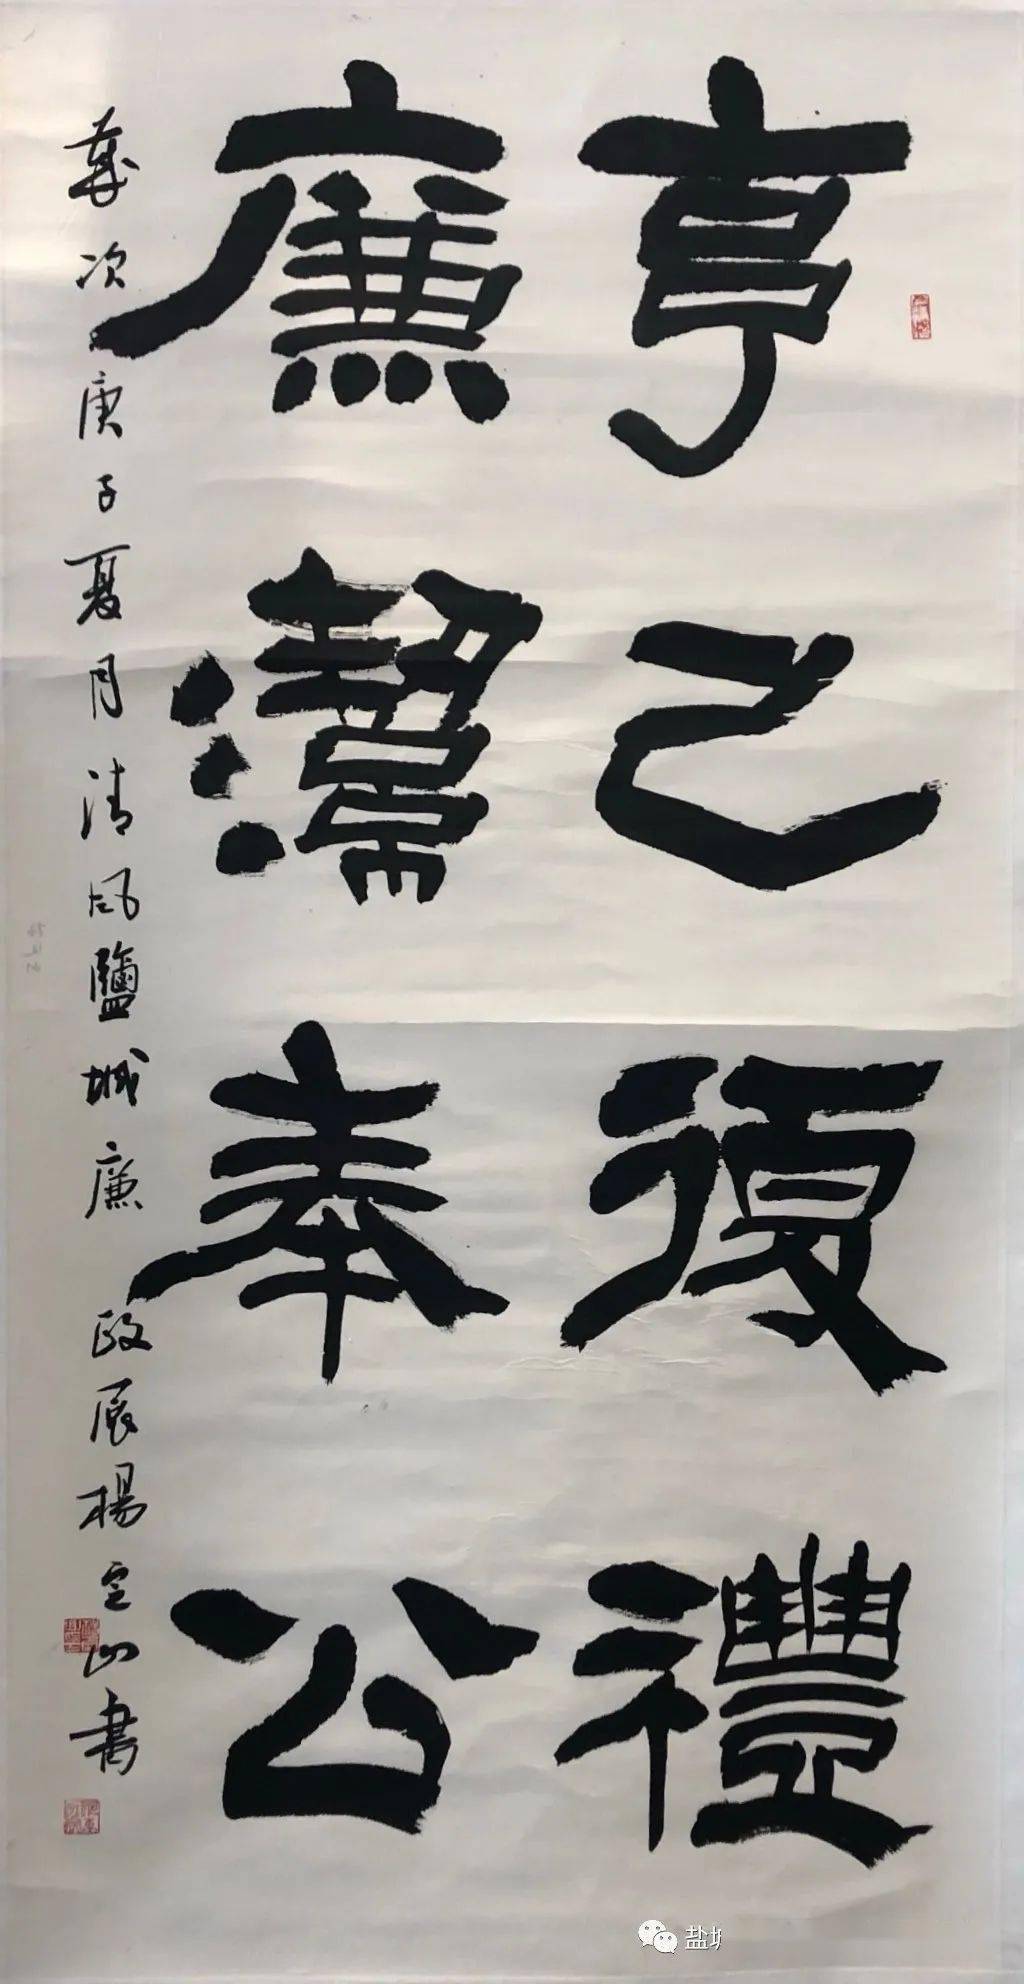 克己復禮
廉潔奉公
歲次庚子夏月清风鹽城廉政展楊定山書
盐城